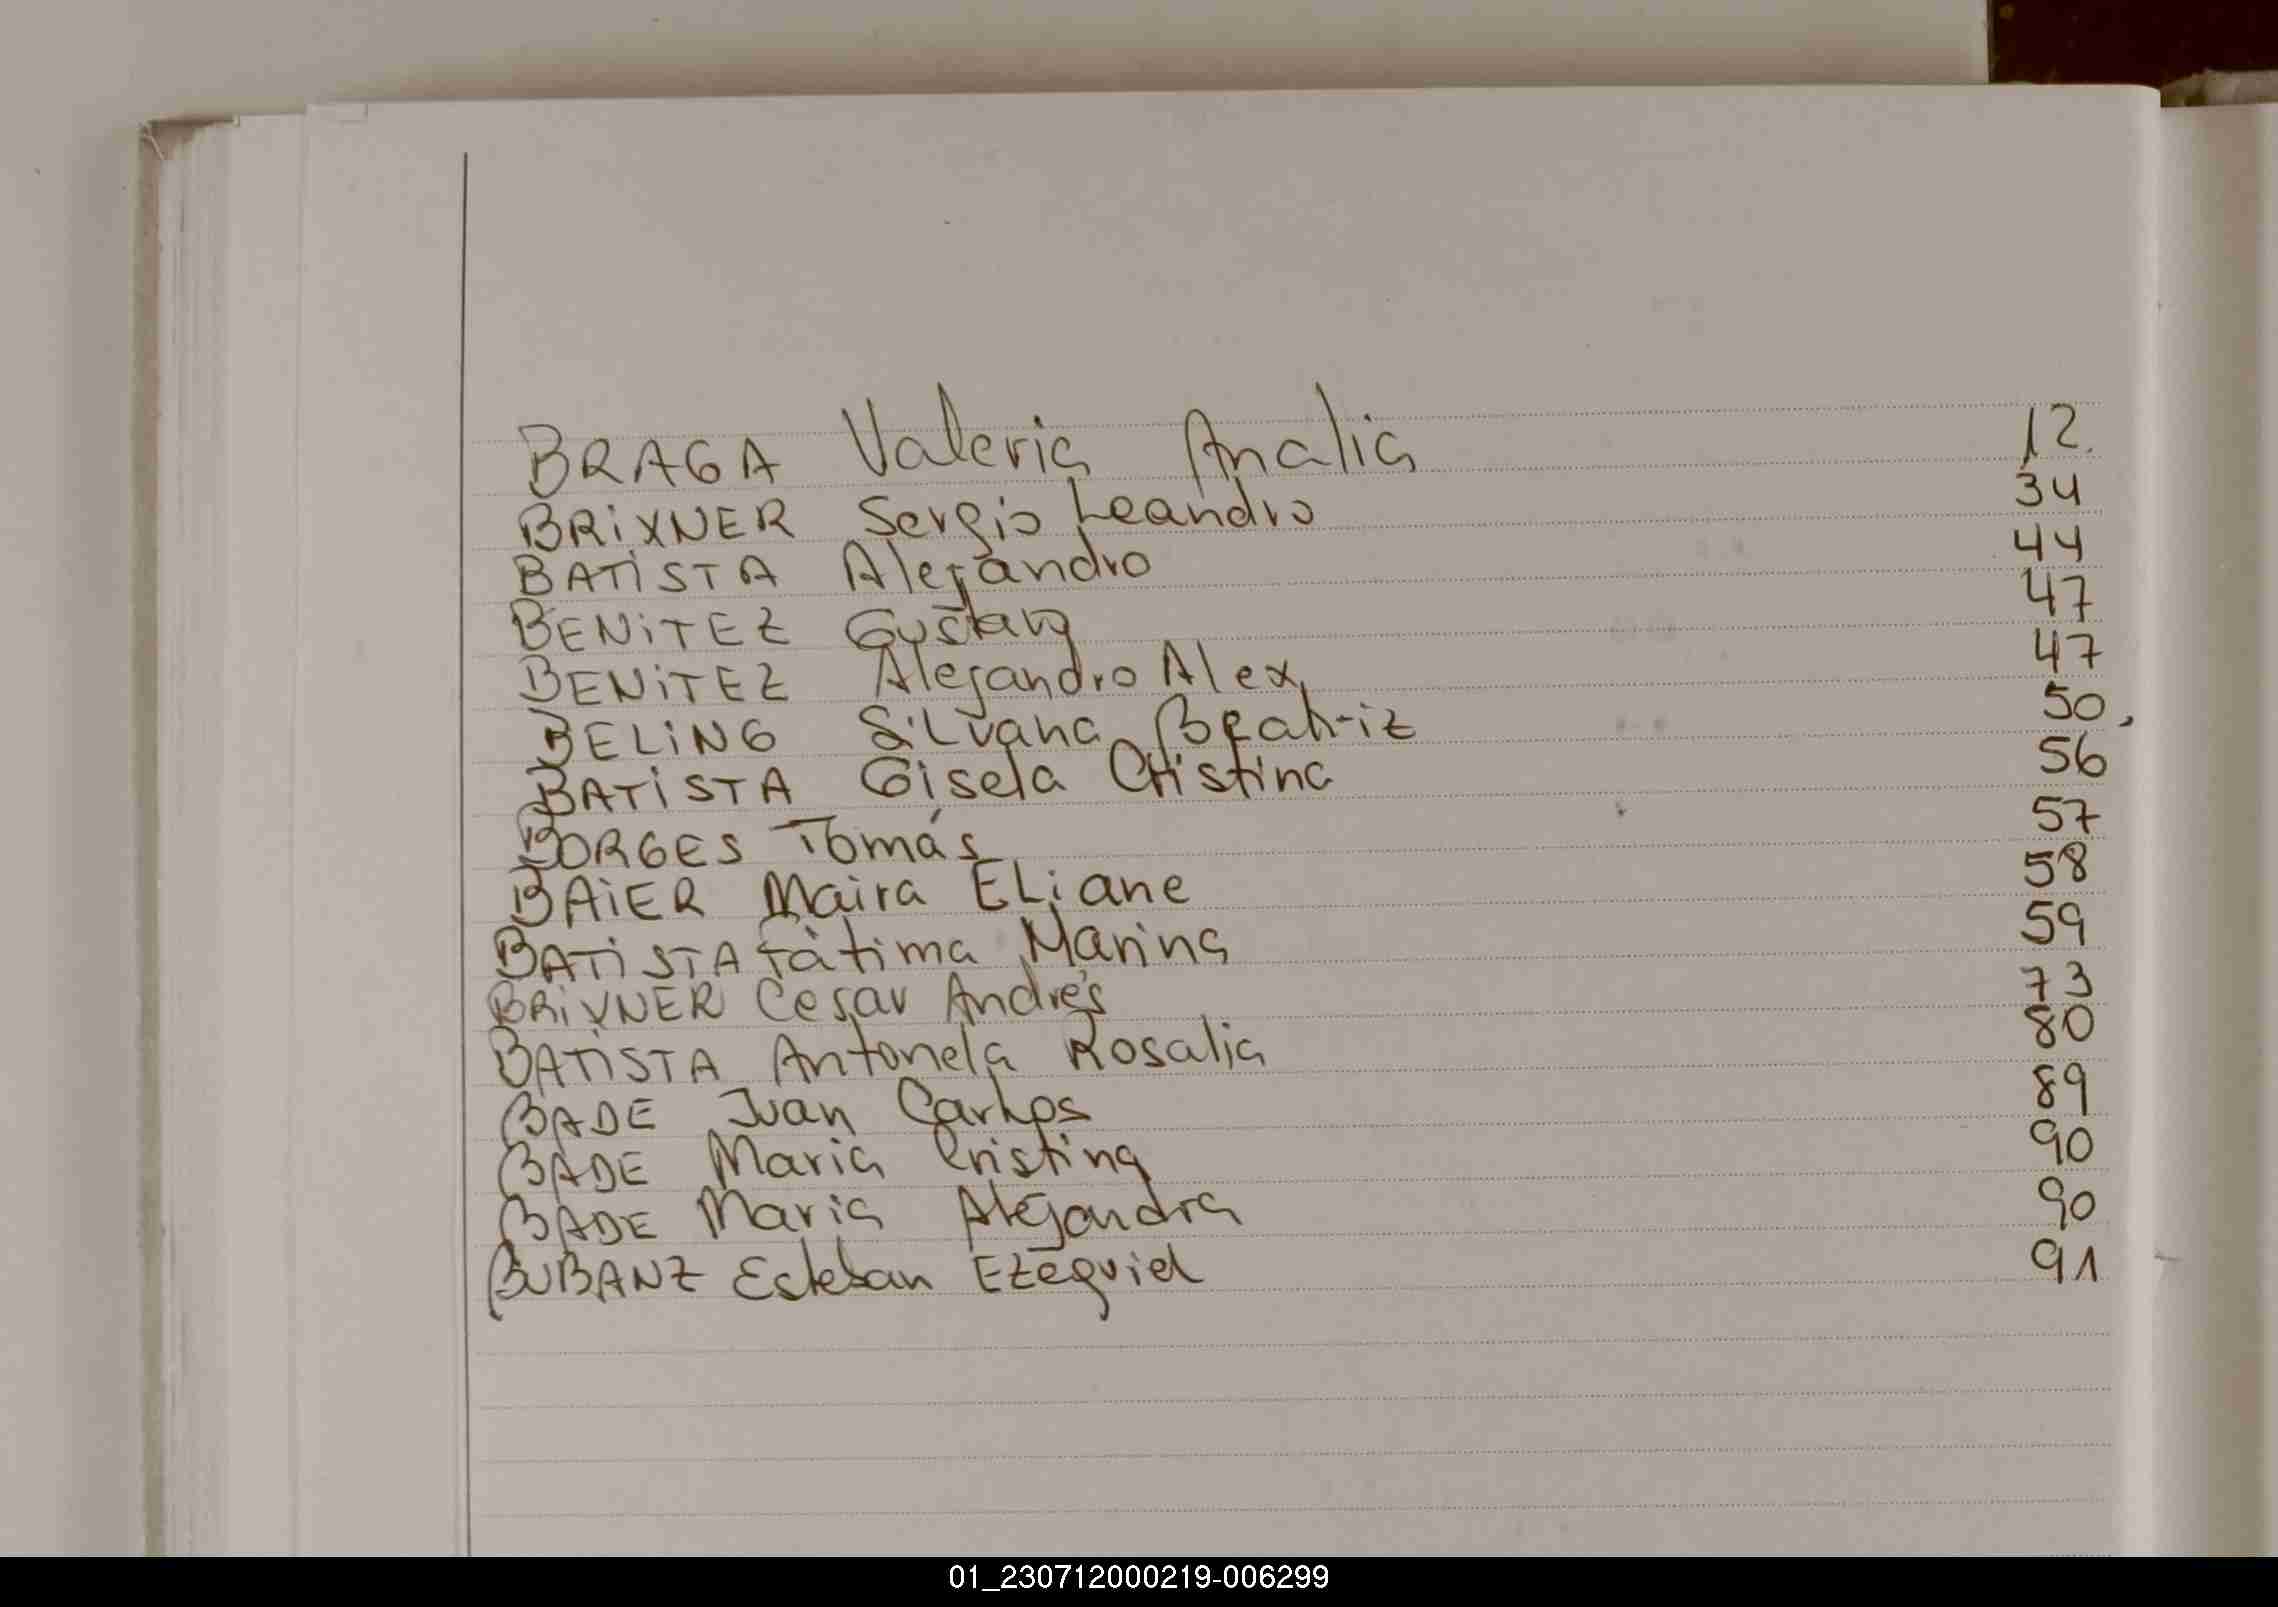 BRAGA Valeria Analia 12.
BRiXNER Sergio Leandro 34
BATiSTA Alejandro 44
BENiTEZ Gustavo 47
BENiTEZ Alejandro Alex 47
BELiNG SiLvana Beatriz 50,
BATiSTA Gisela Cristina 56
BORGES Tomás 57
BAiER Maira ELiane 58
BATiSTA Fàtima Marina 59
BRiXNER Cesar Andrés 73
BATiSTA Antonela Rosalia 80
BADE Juan Carlos 89
BADE Maria Cristina 90
BADE Maria Alejandra 90
BUBANZ Esteban Ezequiel 91
01_230712000219-006299